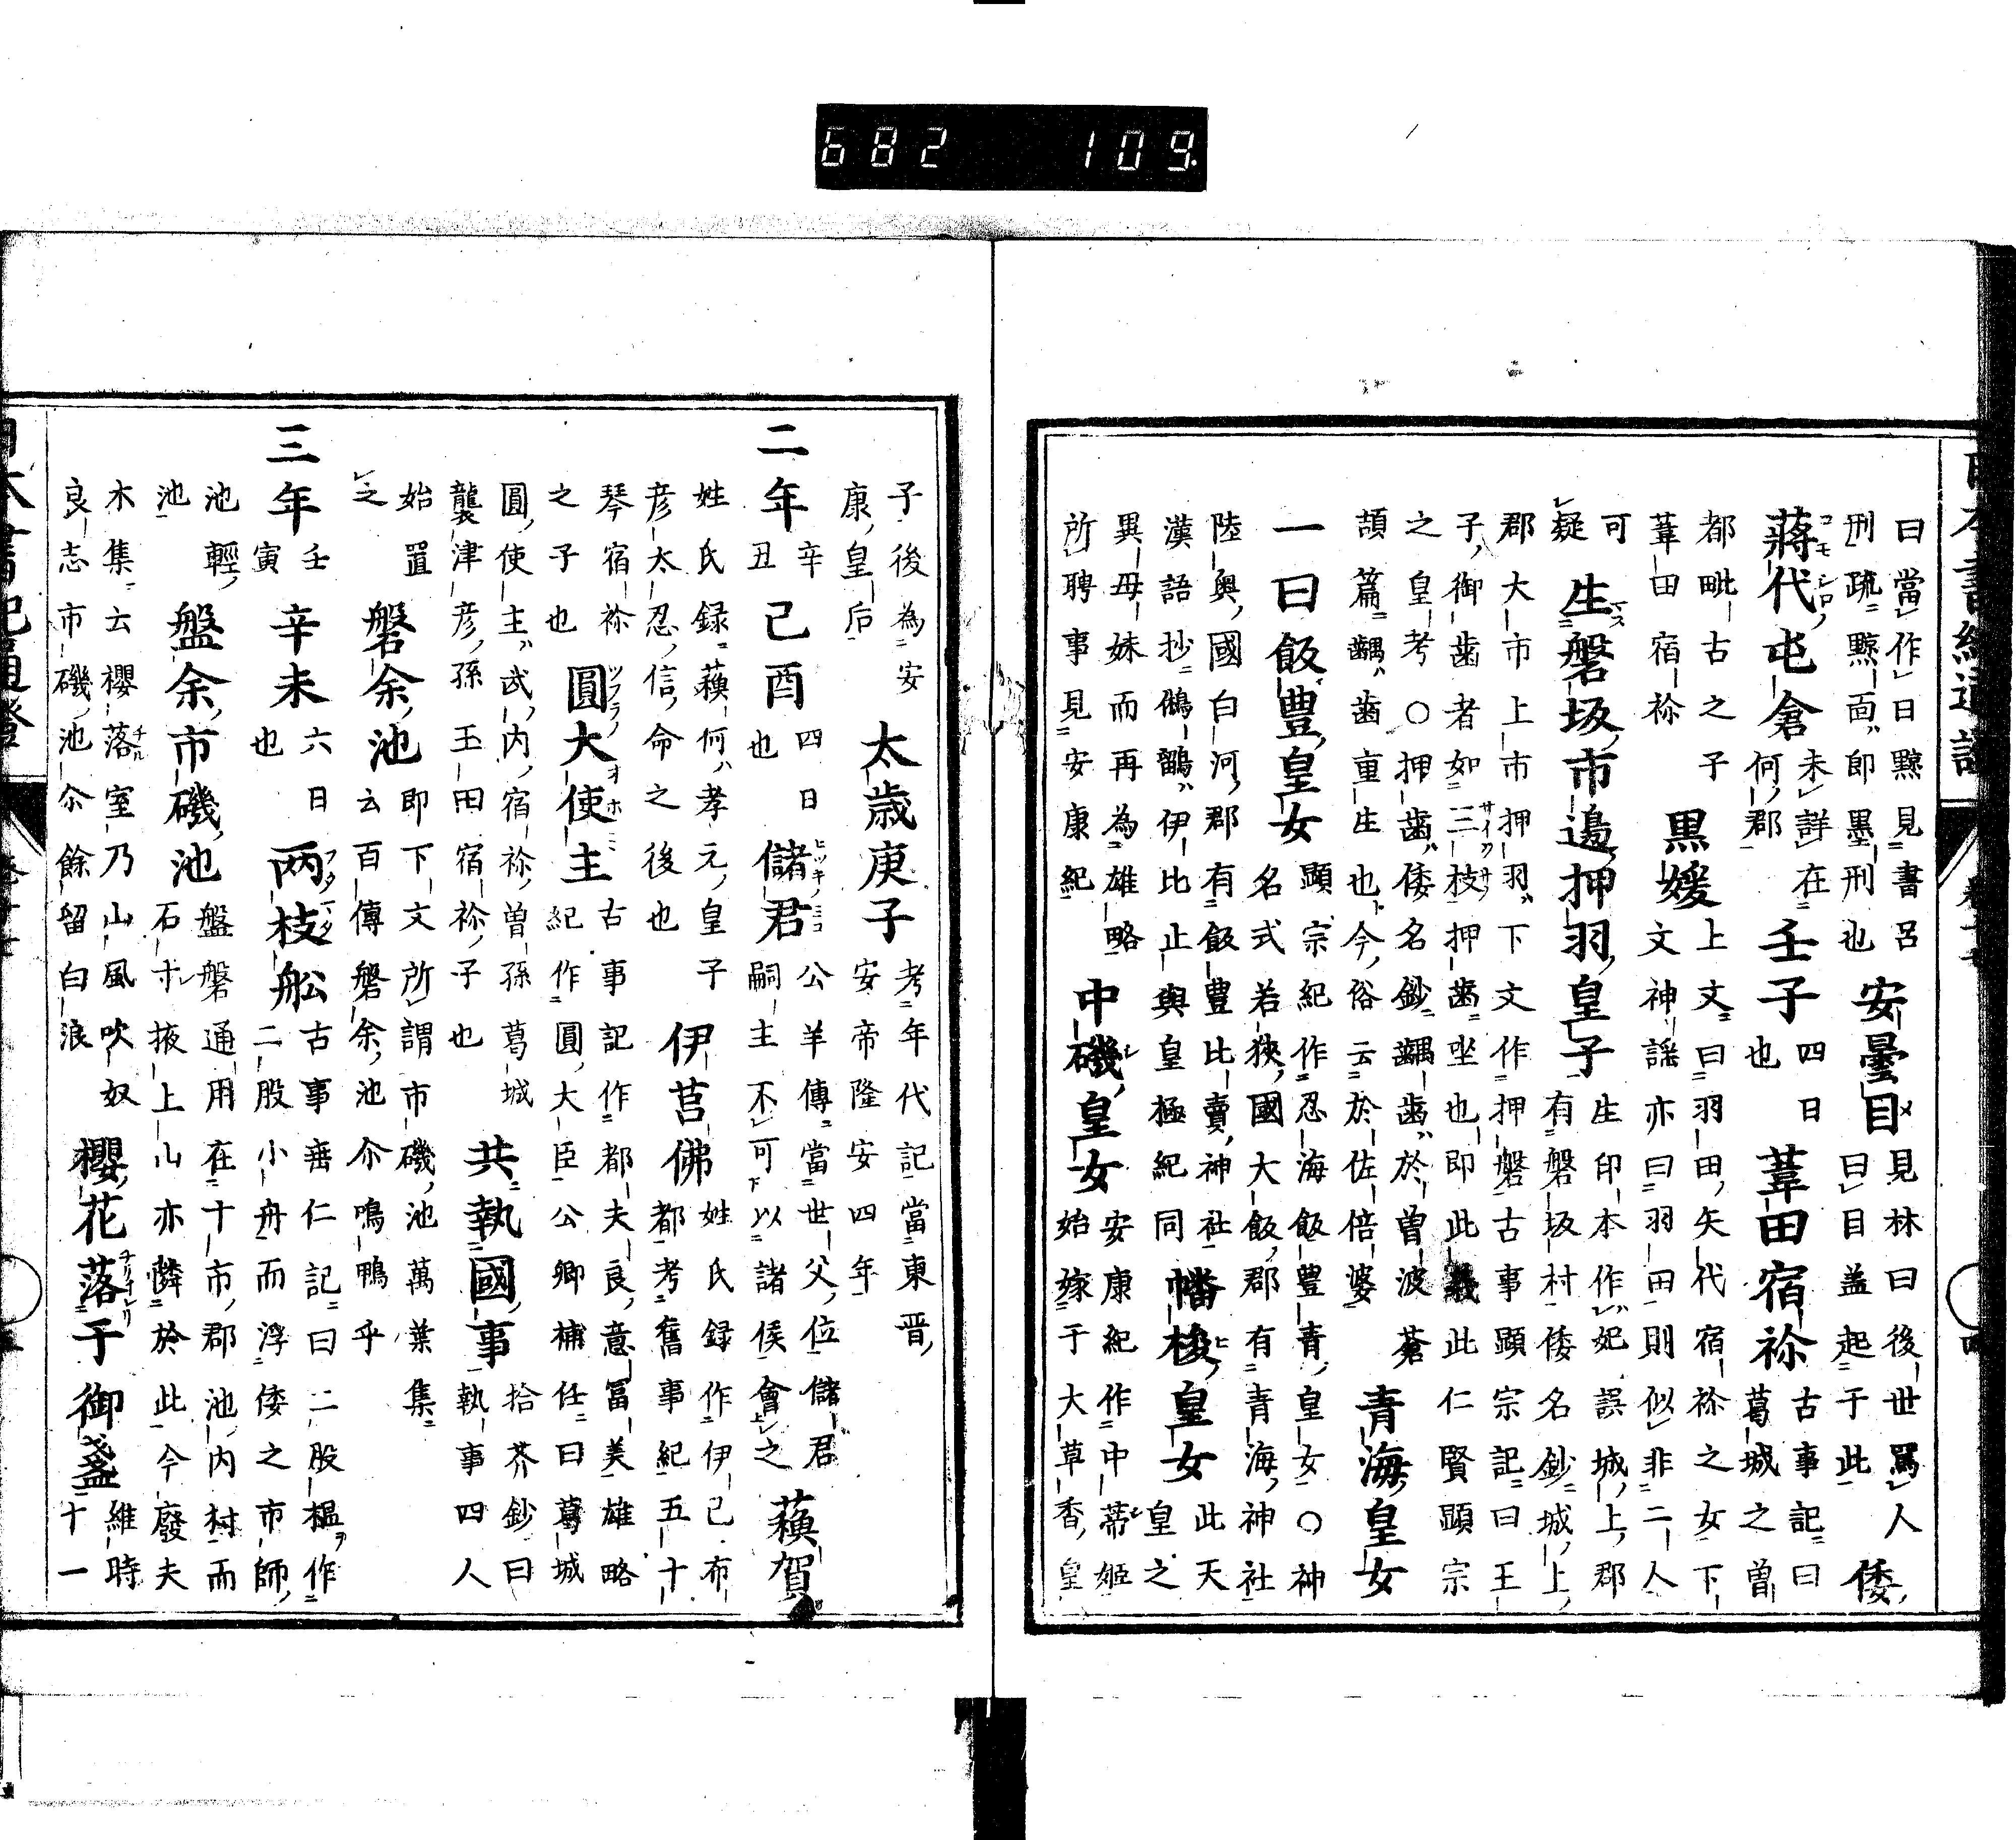 曰當作日黥見書呂
刑疏黥面即墨刑也
安曇目
見林曰後世罵人
曰目蓋起于此
倭
蔣代屯倉
未詳在
何郡
壬子
四日
也
葦田宿祢
古事記曰
葛城之曽
都毗古之子
葦田宿祢
黒媛
上文曰羽田矢代宿祢之女下
文神謡亦曰羽田則似非二人
可
疑
生磐坂市邊押羽皇子
生印本作妃誤城上郡
有磐坂村倭名鈔城上
郡大市上市押羽下文作押磐古事顯宗記曰王
子御齒者如三枝押齒坐也即此義此仁賢顯宗
之皇考○押齒倭名鈔齵齒於曽波蒼
頡篇齵齒重生也今俗云於佐倍婆
青海皇女
一曰飯豊皇女
顯宗紀作忍海飯豊青皇女○神
名式若狹國大飯郡有青海神社
陸奥國白河郡有飯豊比賣神社
漢語抄鵂鶹伊比止與皇極紀同
幡梭皇女
此天
皇之
異母妹而再為雄略
所聘事見安康紀
中磯皇女
安康紀作中蒂姫
始嫁于大草香皇
子後為安
康皇后
太歳庚子
考年代記當東晋
安帝隆安四年
二年
辛
丑
己酉
四日
也
儲君
公羊傳當世父位儲君
嗣主不可以諸侯會之
蘓賀
姓氏録蘓何孝元皇子
彦太忍信命之後也
伊莒佛
姓氏録作伊己布
都考舊事紀五十
琴宿祢
之子也
圓大使主
古事記作都夫良意冨美雄略
紀作圓大臣公卿補任曰葛城
圓使主武内宿祢曽孫葛城
襲津彦孫玉田宿祢子也
共執國事
拾芥鈔曰
執事四人
始置
之
磐余池
即下文所謂市磯池萬葉集
云百傳磐余池尒鳴鴨乎
三年
壬
寅
辛未
六日
也
两枝舩
古事垂仁記曰二股榲作
二股小舟而浮倭之市師
池輕
池
盤余市磯池
盤磐通用在十市郡池内村而
石寸掖上山亦隣於此今廢夫
木集云櫻落室乃山風吹奴
良志市磯池尒餘留白浪
櫻花落于御盞
維時
十一
682 109